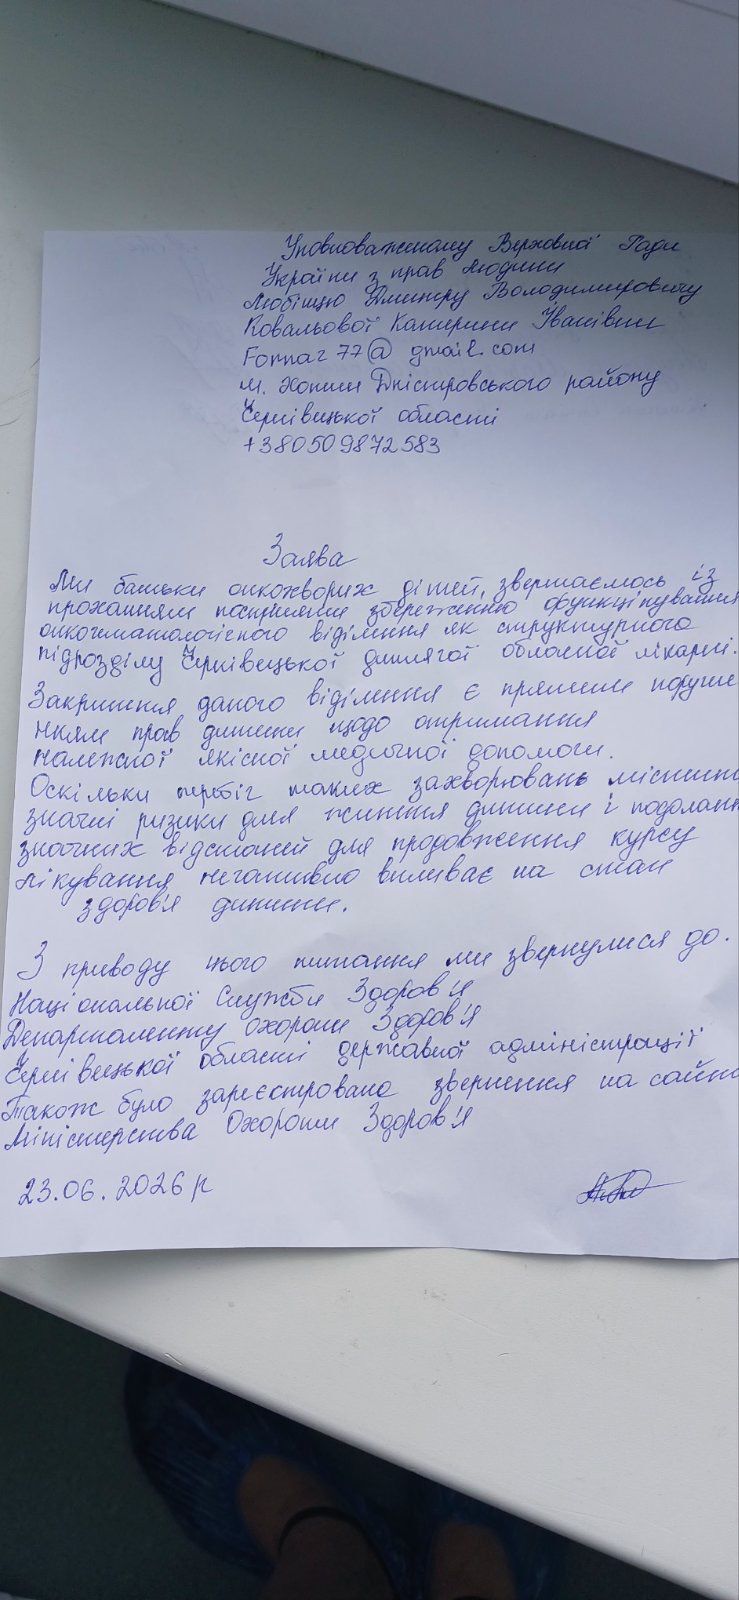 Уповноваженому Верховної Ради
України з прав людини
Любінцю Дмитру Володимировичу
Ковальової Катерини Іванівни
Fornaz77@gmail.com
м. Хотин Дністровського району
Чернівецької області
+380509872583
Заява
Ми батьки онкохворих дітей, звертаємось із
проханням посприяти збереженню функціпування
онкогематологічного відділення як структурного
підрозділу Чернівецької дитячої обласної лікарні.
Закриття даного відділення є прямим поруше
нням прав дитини щодо отримання
належної якісної медичної допомоги.
Оскільки перебіг таких захворювань містить
значні ризики для життя дитини і подолання
значних відстаней для продовження курсу
лікування негативно впливає на стан
здоров'я дитини.
З приводу цього питання ми звернулися до.
Національної Служби Здоров'я
Департаменту Охорони Здоров'я
Чернівецької області державної адміністрації
Також було зареєстровано звернення на сайті
Міністерства Охорони Здоров'я
23.06.2026 р